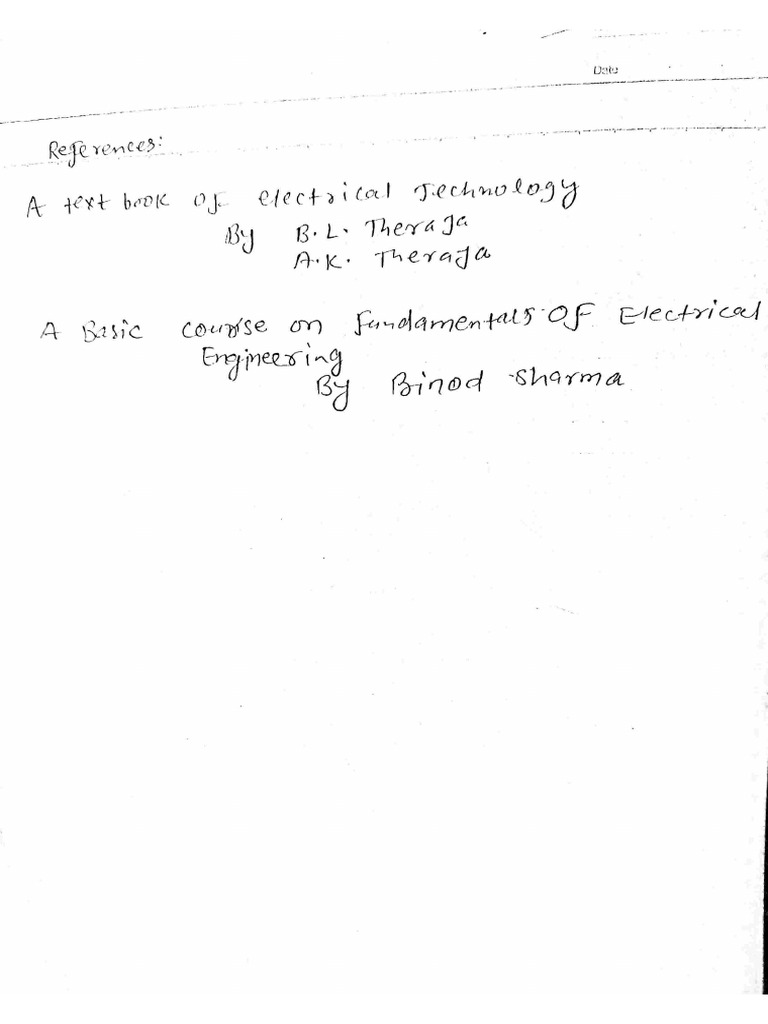 Date
References:
A text book of electrical Technology
By B.L. Theraja
A.K. Theraja
A Basic course on fundamentals OF Electrical
Engineering
By Binod sharma